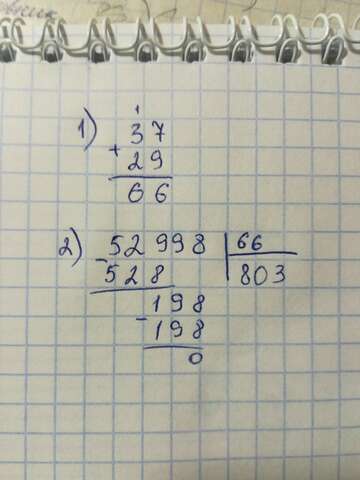 1) 1
37
+ 29
66
2) - 52998 | 66
528 | 803
- 198
198
0